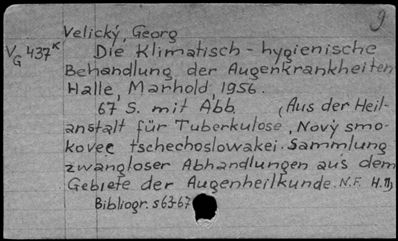 Velický, Georg 9
VG 437K Die Klimatisch-hygienische
Behandlung der Augenkrankheiten
Halle, Marhold, 1956.
67 S. mit Abb (Aus der Heil-
anstalt für Tuberkulose, Nový smo-
kovec tschechoslowakei. Sammlung
zwangloser Abhandlungen aus dem
Gebiete der Augenheilkunde. N.F. H.
Bibliogr. s 63-67